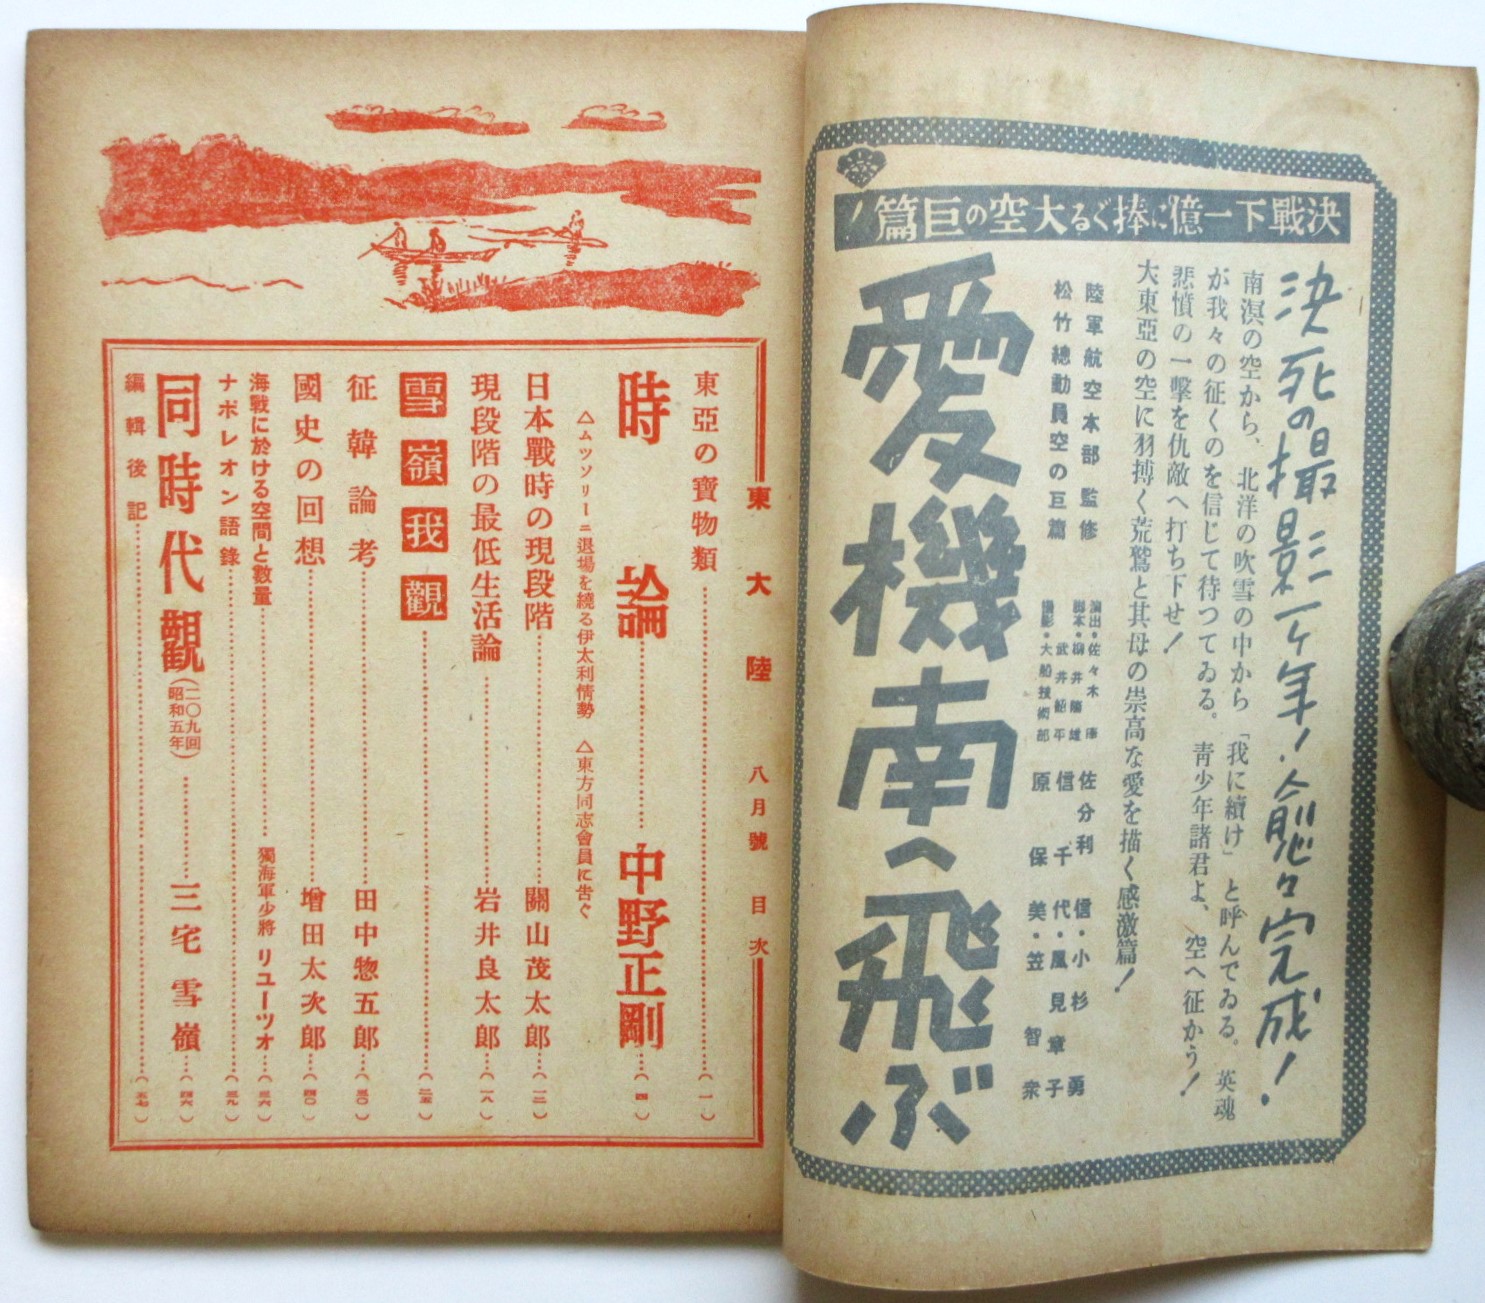 決戰下一億に捧ぐる大空の巨篇！
決死の撮影二ヶ年！愈々完成！
南溟の空から、北洋の吹雪の中から「我に續け」と呼んでゐる。英魂
が我々の征くのを信じて待つてゐる。青少年諸君よ、空へ征かう！
悲憤の一擊を仇敵へ打ち下せ！
大東亞の空に羽搏く荒鷲と其母の崇高な愛を描く感激篇！
陸軍航空本部監修
松竹總動員空の巨篇
演出・佐々木康
脚本・柳井隆雄
武井韶平
撮影・大船技術部
佐分利信・小杉勇
信千代・風見章子
原保美・笠智衆
愛機南へ飛ぶ
東大陸 八月號 目次
東亞の寶物類……（一）
時論……中野正剛……（四）
△ムツソリーニ退場を繞る伊太利情勢 △東方同志會員に吿ぐ
日本戰時の現段階……關山茂太郎……（一三）
現段階の最低生活論……岩井良太郎……（一八）
雪嶺我觀……（二五）
征韓論考……田中惣五郎……（三〇）
國史の回想……增田太次郎……（四〇）
海戰に於ける空間と數量……獨海軍少將 リユーツオ……（三六）
ナポレオン語錄……（三九）
同時代觀（二〇九回 昭和五年）……三宅雪嶺……（四六）
編輯後記……（五七）